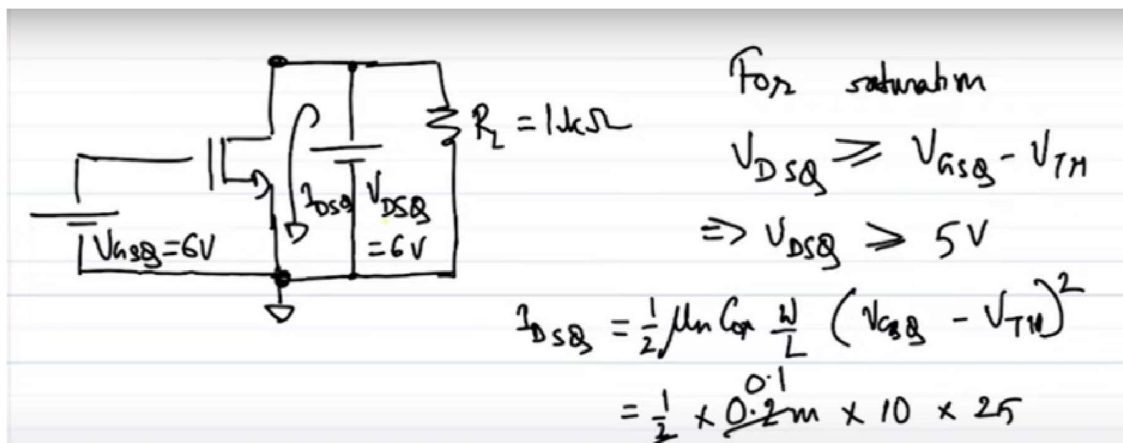 R_L = 1kΩ
I_DSQ
V_DSQ
= 6V
V_GSQ = 6V
For saturation
V_DSQ ≥ V_GSQ - V_TH
=> V_DSQ ≥ 5V
I_DSQ = 1/2 μn Cox W/L (V_GSQ - V_TH)²
0.1
= 1/2 × 0.2m × 10 × 25